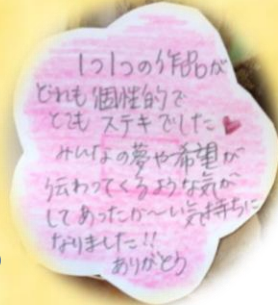 1つ1つの作品が
どれも個性的で
とてもステキでした♥
みんなの夢や希望が
伝わってくるような気が
してあったか〜い気持ちに
なりました!!
ありがとう